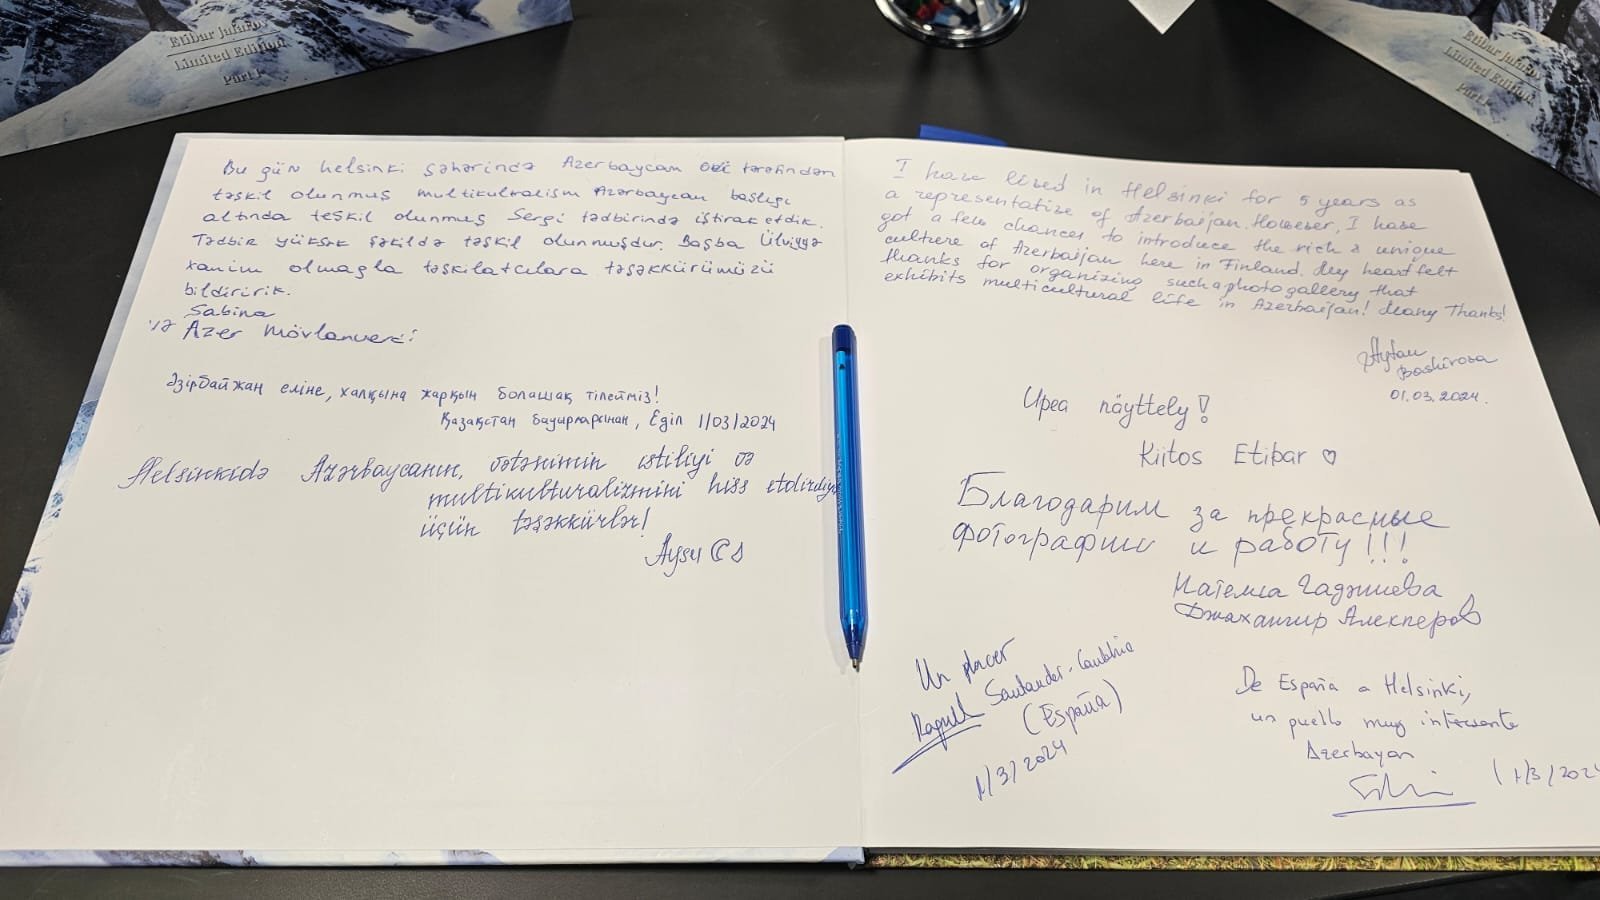 Etibar Jafarov
Limited Edition
Part I
Etibar Jafarov
Limited Edition
Part I
Bu gün Helsinki şəhərində Azerbaycan evi tərəfindən
təşkil olunmuş multikultralism Azərbaycan başlıgı
altında teşkil olunmuş Sergi tədbirində iştirak etdik.
Tədbir yüksək şəkildə təşkil olunmuşdur. Başba Ülviyyə
xanım olmaqla təşkilatcılara təşəkkürümüzü
bildiririk.
Sabina
və Azer Mövlanverdi
Әзірбайжан еліне, халқына жарқын болашақ тілейміз!
Қазақстан бауырларыңнан, Еділ 1/03/2024
Helsinkidə Azərbaycanın, vətənimin istiliyi və
multikulturalizmini hiss etdirdiyi
üçün təşəkkürlər!
Aysu
I have lived in Helsinki for 5 years as
a representative of Azerbaijan. However, I have
got a few chances to introduce the rich & unique
culture of Azerbaijan here in Finland. My heartfelt
thanks for organizing such a photogallery that
exhibits multicultural life in Azerbaijan! Many Thanks!
Aytan
Bashirova
01.03.2024.
Upea näyttely!
Kiitos Etibar ♡
Благодарим за прекрасные
фотографии и работу!!!
Гаджиева
Джахангир Алекперов
Un placer
Raquel Santander-Cantabria
(España)
1/3/2024
De España a Helsinki,
un pueblo muy interesante
Azerbayan
(1/3/2024